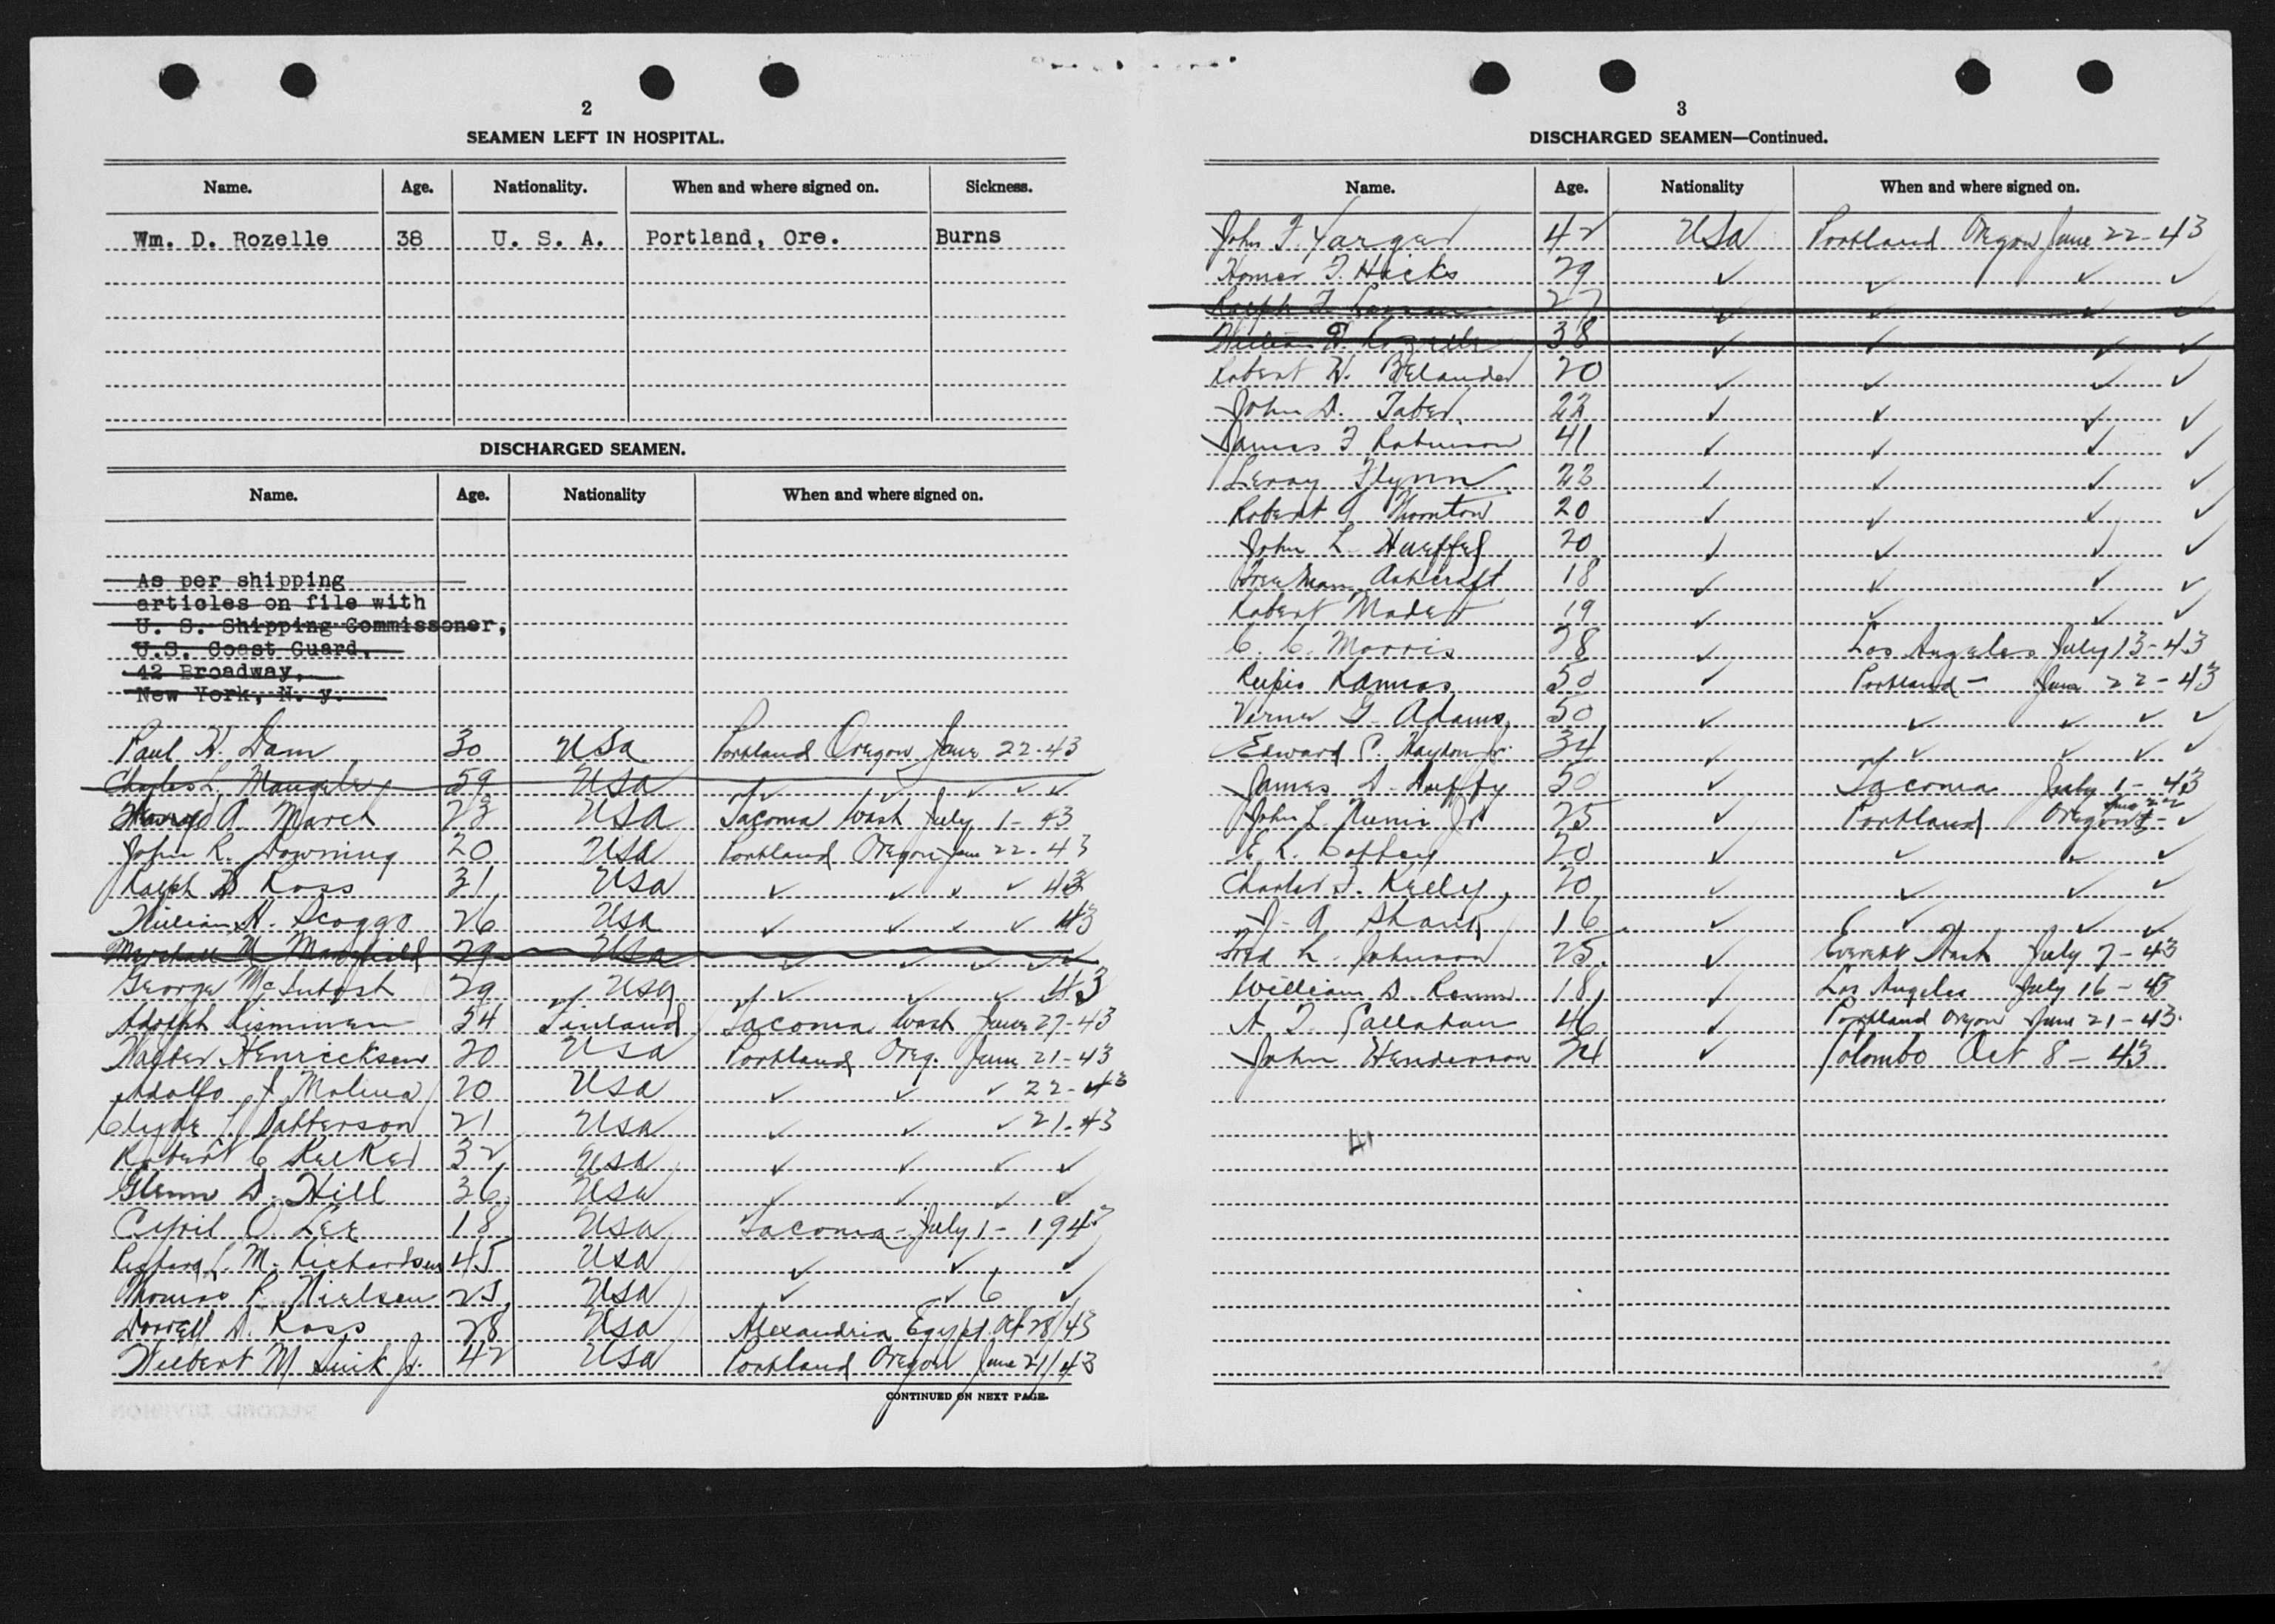 2
SEAMEN LEFT IN HOSPITAL.
Name. Age. Nationality. When and where signed on. Sickness.
Wm. D. Rozelle 38 U. S. A. Portland, Ore. Burns
DISCHARGED SEAMEN.
Name. Age. Nationality When and where signed on.
As per shipping
articles on file with
U. S. Shipping Commissoner,
U.S. Coast Guard,
42 Broadway,
New York, N. y.
Paul W. Dam 30 USA Portland Oregon June 22-43
Charles L. 59 USA ✓ ✓ ✓ ✓ ✓
A. March 23 USA Tacoma Wash July 1-43
John R. Downing 20 USA Portland Oregon June 22-43
Ralph D Ross 31 USA ✓ ✓ ✓ ✓ 43
William H. Scoggo 26 USA ✓ ✓ ✓ ✓ 43
Marshall M Mansfield 29 USA ✓ ✓ ✓ ✓ ✓
George McIntosh 29 USA ✓ ✓ ✓ 43
Adolph 54 Finland Tacoma Wash June 27-43
Walter Henricksen 20 USA Portland Oreg. June 21-43
Adolfo J Molina 20 USA ✓ ✓ ✓ 22-43
Clyde L. Patterson 21 USA ✓ ✓ ✓ 21-43
Robert C 32 USA ✓ ✓ ✓ ✓
Glenn D. Hill 36 USA ✓ ✓ ✓ ✓
Cyril O. Lee 18 USA Tacoma - July 1 - 1943
L. M. Richardson 45 USA ✓ ✓ ✓
Thomas P. Nielsen 25 USA ✓ ✓ 6 ✓
Dorrell D. Ross 28 USA Alexandria Egypt Oct 28/43
Wilbert M Jr. 42 USA Portland Oregon June 21/43
CONTINUED ON NEXT PAGE.
3
DISCHARGED SEAMEN—Continued.
Name. Age. Nationality When and where signed on.
John F. Yarger 42 USA Portland Oregon June 22-43
Homer F. Hicks 29 ✓ ✓ ✓ ✓
Ralph F. 27 ✓ ✓ ✓ ✓
William D. Rozelle 38 ✓ ✓ ✓ ✓
Robert W. 20 ✓ ✓ ✓ ✓
John D. Taber 22 ✓ ✓ ✓ ✓
James F Robinson 41 ✓ ✓ ✓ ✓
Leroy Flynn 23 ✓ ✓ ✓ ✓
Robert A Thornton 20 ✓ ✓ ✓ ✓
John L. Haeffel 20 ✓ ✓ ✓ ✓
Freeman Ashcraft 18 ✓ ✓ ✓ ✓
Robert 19 ✓ ✓ ✓ ✓
C. C. Morris 28 ✓ Los Angeles July 13-43
Kamras 50 ✓ Portland - June 22-43
Verner G. Adams 50 ✓ ✓ ✓ ✓ ✓
Edward C. Haydon Jr. 34 ✓ ✓ ✓ ✓ ✓
James D. Duffy 50 ✓ Tacoma July 1-43
John L. Jr 25 ✓ Portland Oregon June 22 ✓
E. R. Coffey 20 ✓ ✓ ✓ ✓
Charles F. Kelley, 20 ✓ ✓ ✓ ✓
J. A. Shank 16 ✓ ✓ ✓ ✓
Fred L. Johnson 25 ✓ Everett Wash July 7-43
William D. 18 ✓ Los Angeles July 16-43
A. T. Callahan 46 ✓ Portland Oregon June 21-43
John Henderson 24 ✓ Colombo Oct 8-43
41